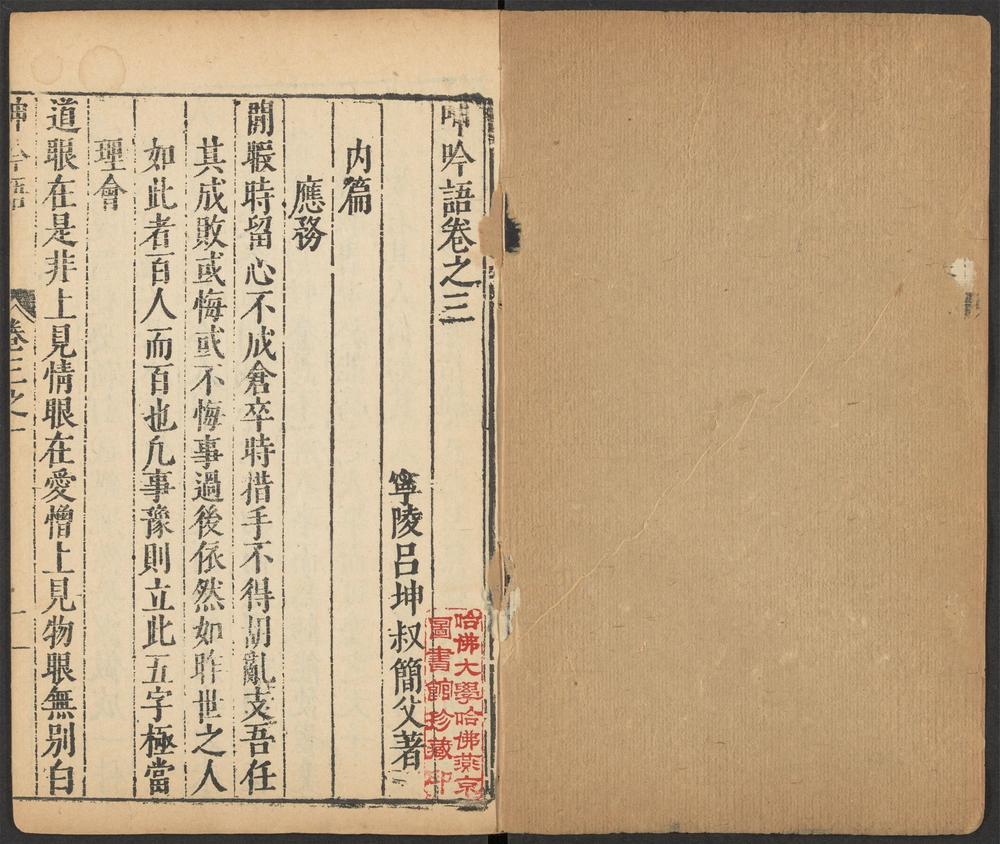 呻吟語卷之三
哈佛大學哈佛燕京
圖書館珍藏印
寧陵呂坤叔簡父著
内篇
應務
閒暇時留心不成倉卒時措手不得胡亂支吾任
其成敗或悔或不悔事過後依然如昨世之人
如此者百人而百也凡事豫則立此五字極當
理會
道眼在是非上見情眼在愛憎上見物眼無别白
呻吟語 卷三之一 一